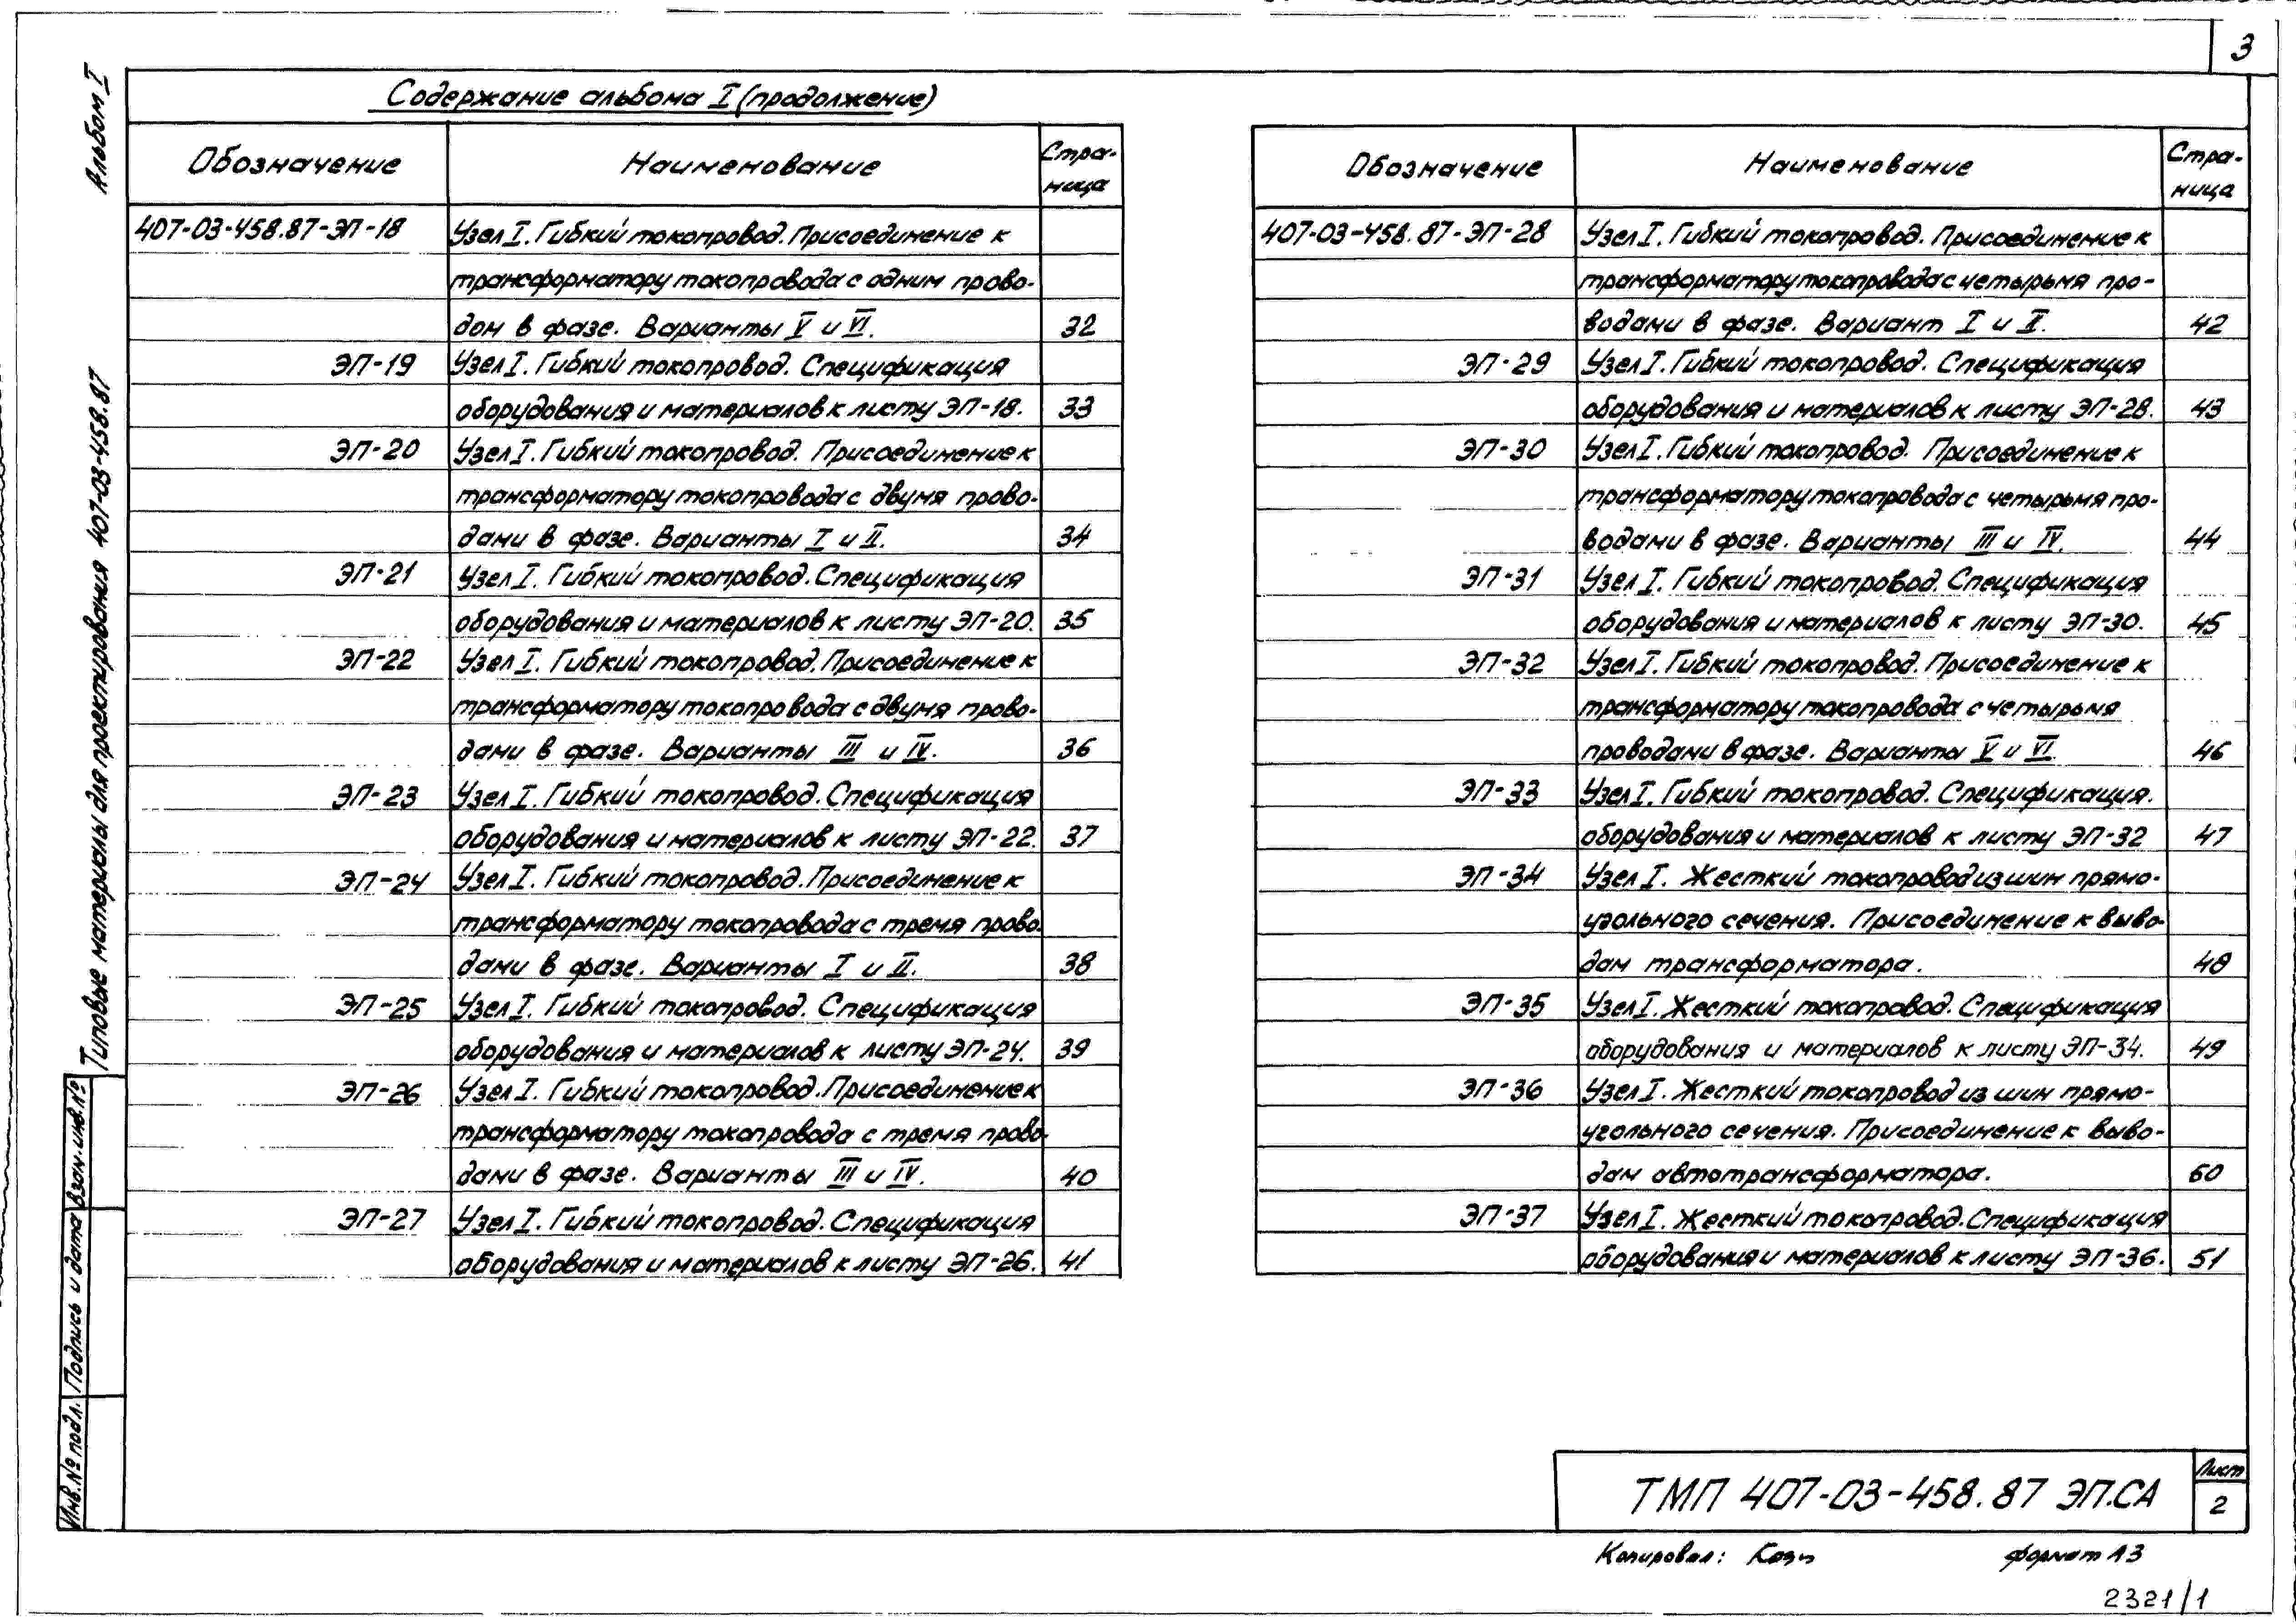 3
Альбом I
Типовые материалы для проектирования 407-03-458.87
Содержание альбома I (продолжение)
Обозначение Наименование Стра-
ница
407-03-458.87-ЭП-18 Узел I. Гибкий токопровод. Присоединение к
трансформатору токопровода с одним прово-
дом в фазе. Варианты V и VI. 32
ЭП-19 Узел I. Гибкий токопровод. Спецификация
оборудования и материалов к листу ЭП-18. 33
ЭП-20 Узел I. Гибкий токопровод. Присоединение к
трансформатору токопровода с двумя прово-
дами в фазе. Варианты I и II. 34
ЭП-21 Узел I. Гибкий токопровод. Спецификация
оборудования и материалов к листу ЭП-20. 35
ЭП-22 Узел I. Гибкий токопровод. Присоединение к
трансформатору токопровода с двумя прово-
дами в фазе. Варианты III и IV. 36
ЭП-23 Узел I. Гибкий токопровод. Спецификация
оборудования и материалов к листу ЭП-22. 37
ЭП-24 Узел I. Гибкий токопровод. Присоединение к
трансформатору токопровода с тремя прово-
дами в фазе. Варианты I и II. 38
ЭП-25 Узел I. Гибкий токопровод. Спецификация
оборудования и материалов к листу ЭП-24. 39
ЭП-26 Узел I. Гибкий токопровод. Присоединение к
трансформатору токопровода с тремя прово-
дами в фазе. Варианты III и IV. 40
ЭП-27 Узел I. Гибкий токопровод. Спецификация
оборудования и материалов к листу ЭП-26. 41
Обозначение Наименование Стра-
ница
407-03-458.87-ЭП-28 Узел I. Гибкий токопровод. Присоединение к
трансформатору токопровода с четырьмя про-
водами в фазе. Вариант I и II. 42
ЭП-29 Узел I. Гибкий токопровод. Спецификация
оборудования и материалов к листу ЭП-28. 43
ЭП-30 Узел I. Гибкий токопровод. Присоединение к
трансформатору токопровода с четырьмя про-
водами в фазе. Варианты III и IV. 44
ЭП-31 Узел I. Гибкий токопровод. Спецификация
оборудования и материалов к листу ЭП-30. 45
ЭП-32 Узел I. Гибкий токопровод. Присоединение к
трансформатору токопровода с четырьмя
проводами в фазе. Варианты V и VI. 46
ЭП-33 Узел I. Гибкий токопровод. Спецификация.
оборудования и материалов к листу ЭП-32 47
ЭП-34 Узел I. Жесткий токопровод из шин прямо-
угольного сечения. Присоединение к выво-
дам трансформатора. 48
ЭП-35 Узел I. Жесткий токопровод. Спецификация
оборудования и материалов к листу ЭП-34. 49
ЭП-36 Узел I. Жесткий токопровод из шин прямо-
угольного сечения. Присоединение к выво-
дам автотрансформатора. 60
ЭП-37 Узел I. Жесткий токопровод. Спецификация
оборудования и материалов к листу ЭП-36. 51
Инв.№ подл. Подпись и дата Взам.инв.№
ТМП 407-03-458.87 ЭП.СА
Лист
2
Копировал: формат А3
2321/1